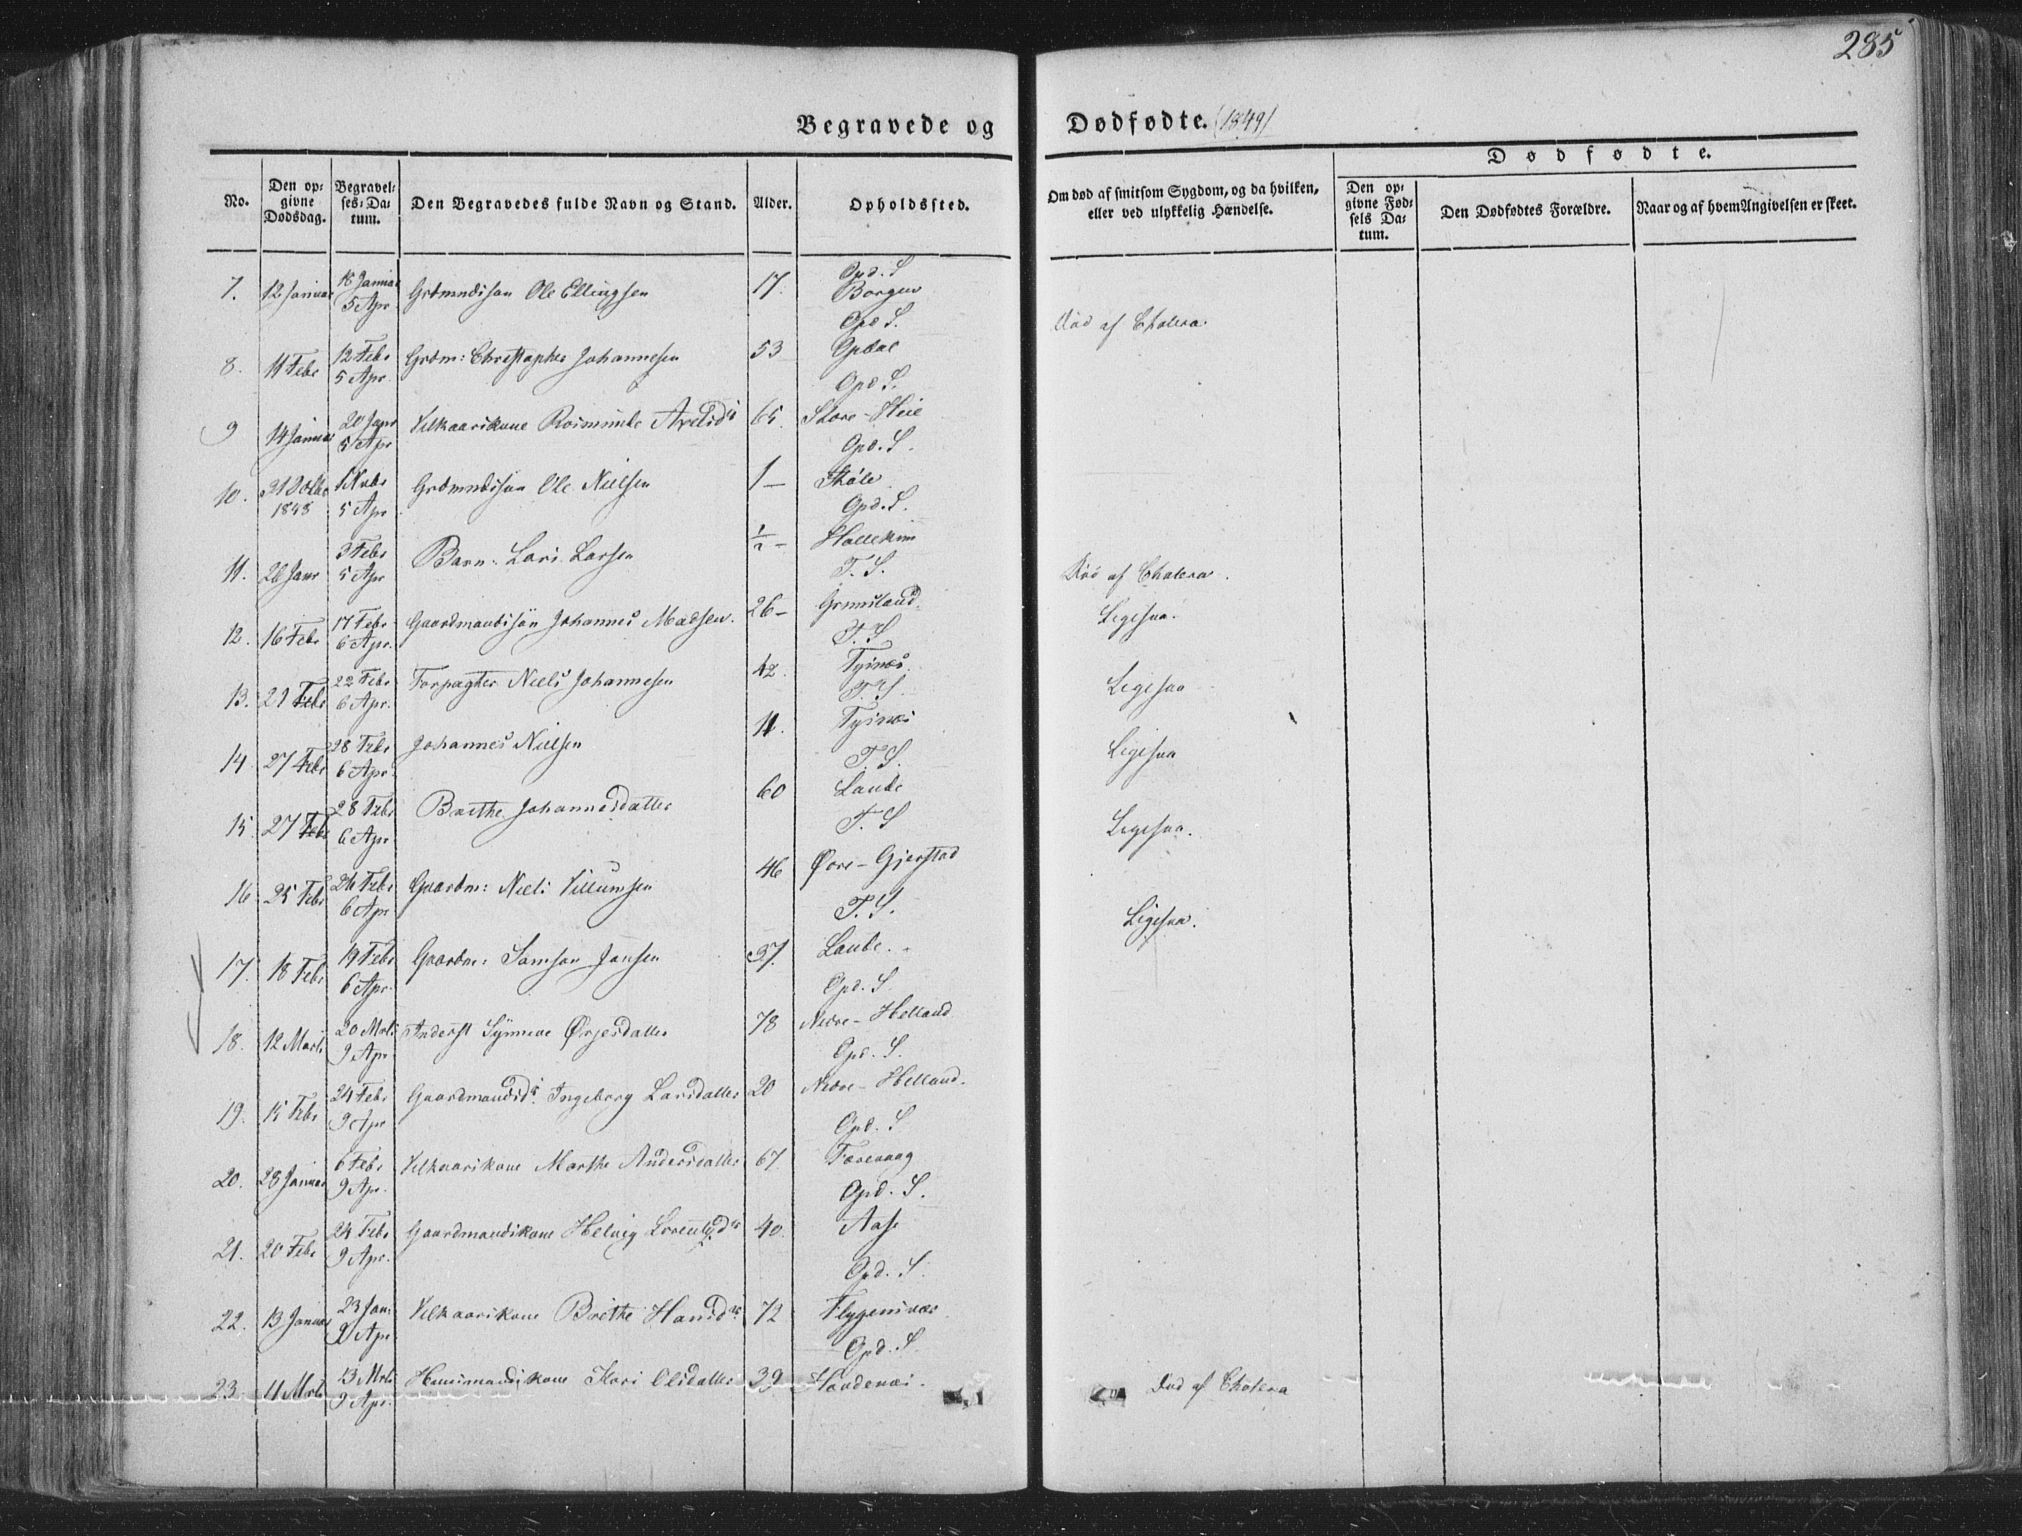 285
Begravede og Dødfødte. (1849)
No.
Den opgivne Dødsdag.
Begravelses-Datum.
Den Begravedes fulde Navn og Stand.
Alder.
Opholdssted.
Om død af smitsom Sygdom, og da hvilken, eller ved ulykkelig Hændelse.
Dødfødte.
Den opgivne Fødsels Datum.
Den Dødfødtes Forældre.
Naar og af hvem Angivelsen er skeet.
Opd. S
7. 12 Januar 18 Januar Grdmndssøn Ole Ellingsen 17. Borgen
5 Apr
Opd S. Død af Cholera
8. 11 Febr 12 Febr Grdm: Christopher Johannesen 53 Opdal
5 Apr
Opd S.
9 14 Januar 20 Janr Vilkaarskone Axelsdr 65 Store-Heie
5 Apr
Opd. S.
10. 31 Octbr 1 Nvbr Grdmndssøn Ole Nielsen 1 – Støle
1848 5 Apr
Opd. S.
11. 26 Janr 3 Febr Barn: Lars Larsen ½ – Hollekim
5 Apr
T. S. Død af Cholera.
12. 16 Febr 17 Febr Gaardmandssøn Johannes Madsen. 26 – Grimsland. Ligesaa.
6 Apr.
T. S.
13. 21 Febr 22 Febr Forpagter Niels Johannesen 42. Tysnæs Ligesaa
6 Apr.
T. S.
14 27 Febr 28 Febr Johannes Nielsen 11. Tysnæs Ligesaa
6 Apr.
T. S.
15 27 Febr 28 Febr Brithe Johannesdatter 60 Lande Ligesaa.
6 Apr
T. S
16 25 Febr 26 Febr Gaardm: Niels Villumsen 46 Øvre-Gjerstad
6 Apr
T. S. Ligesaa.
17. 18 Febr 19 Febr Gaardm: Samson Jansen 37. Lande.
6 Apr.
Opd. S
18. 12 Marts 20 Mrts Synneve Ørjesdatter 78 Nedre-Helland
9 Apr
Opd. S.
19. 15 Febr 24 Febr Gaardmandsdr. Ingeborg Larsdatter 20 Nedre-Helland.
9 Apr
Opd. S
20. 28 Januar 6 Febr Vilkaarskone Marthe Andersdatter 67 Færevaag
9 Apr.
Opd. S.
21. 20 Febr 24 Febr Gaardmandskone Helvig 40. Aase
9 Apr.
Opd. S.
22. 13 Januar 23 Jan: Vilkaarskone Brithe Hansdr 72 Flygansvær
9 Apr
Opd. S
23. 11 Mrts 13 Mrts Huusmandskone Kari Olsdatter 39 Død af Cholera
9 Apr.